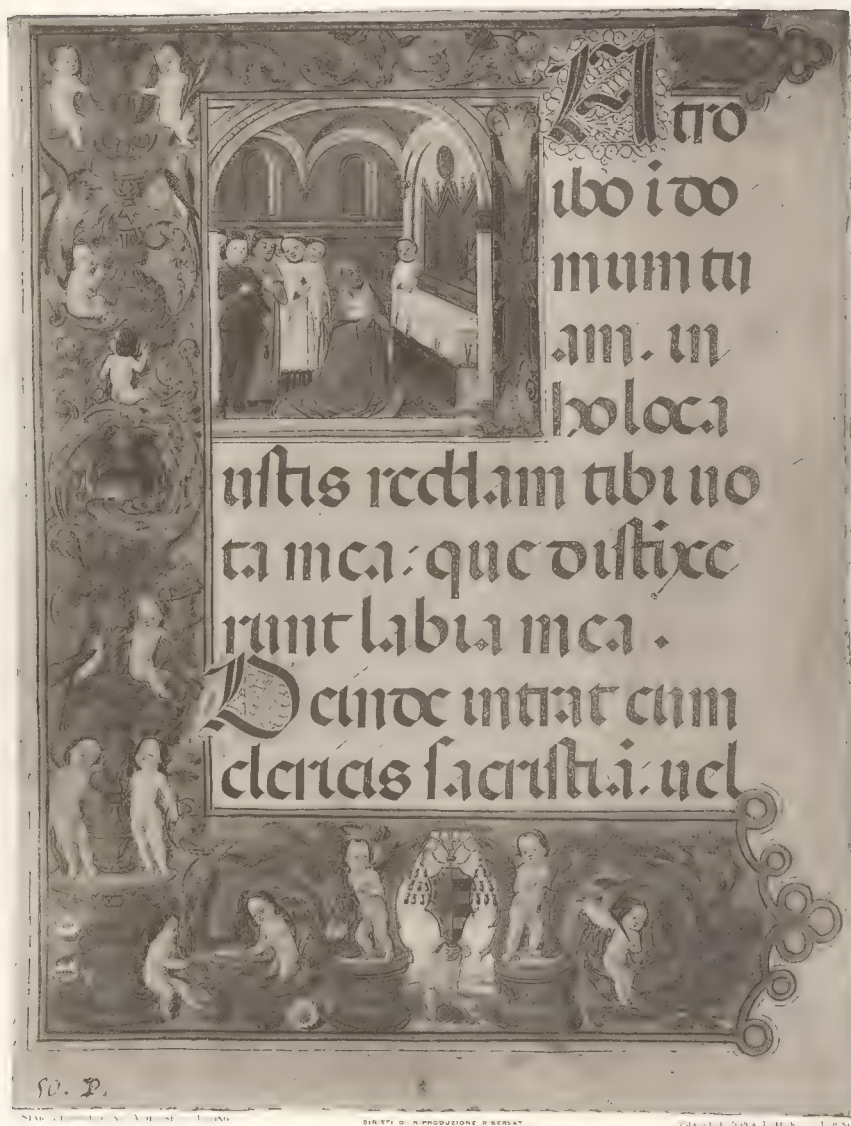 Atro
ibo i do
mum tu
am. in
holoca
ustis reddam tibi uo
ta mea: que distixe
runt labia mea.
Deinde intrat cum
clericis sacristia: uel
50. P.
DIRITTI DI RIPRODUZIONE RISERVAT